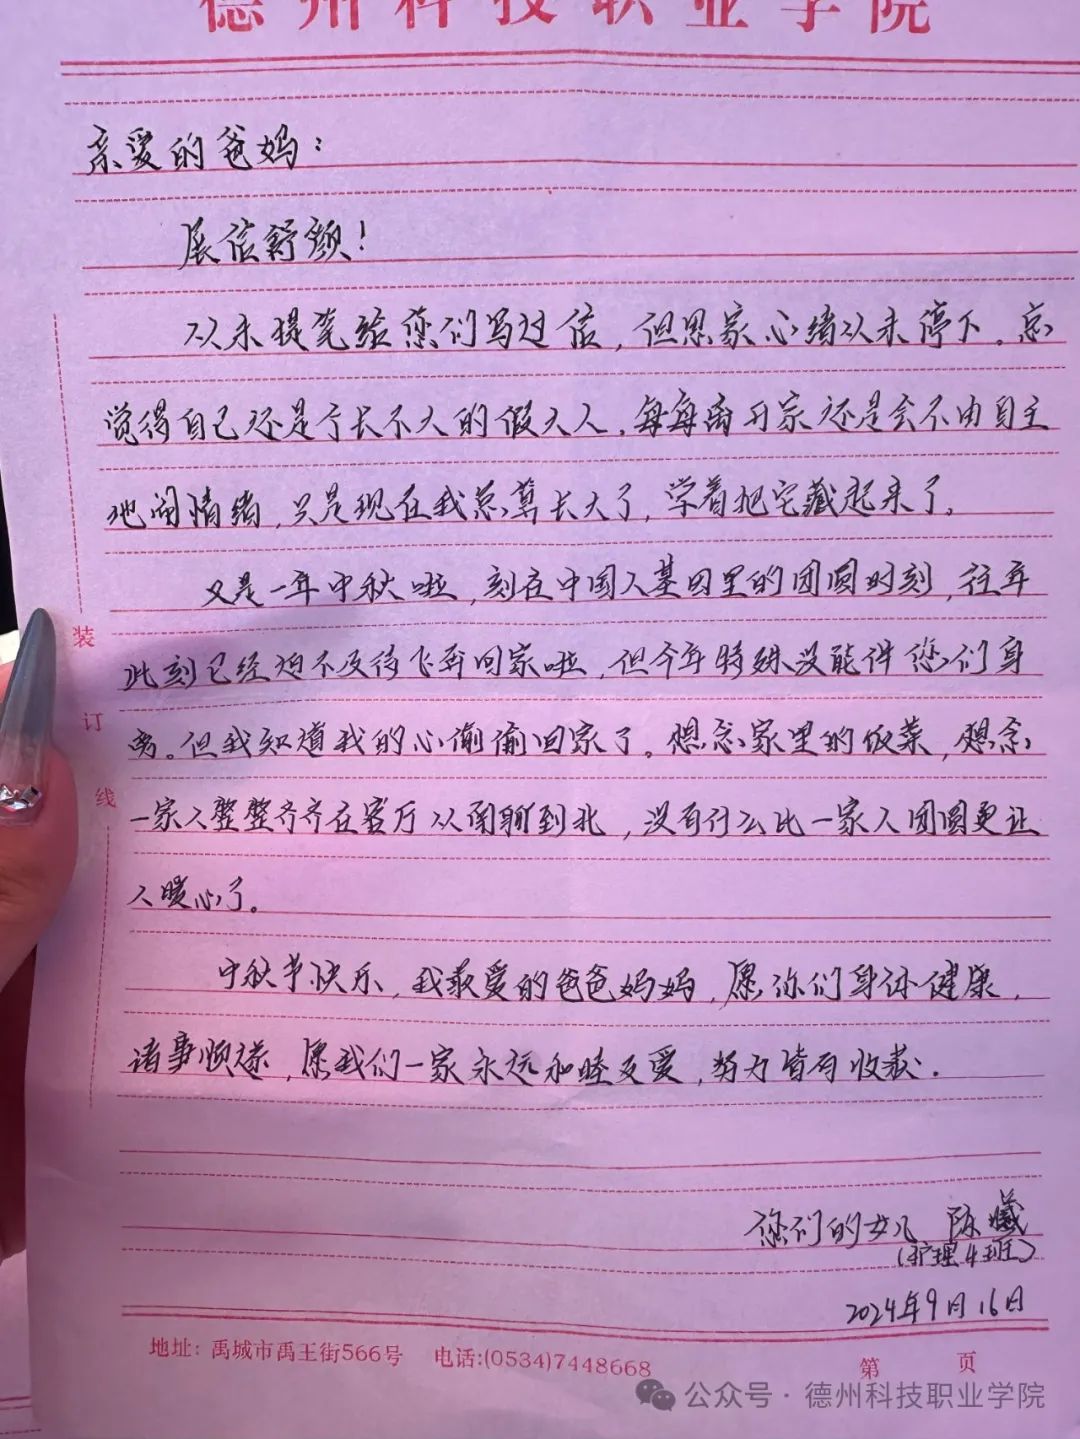 德州科技职业学院
亲爱的爸妈：
展信舒颜！
从未提笔给您们写过信，但思家心绪从未停下。总
觉得自己还是个长不大的假大人，每每离开家还是会不由自主
地闹情绪，只是现在我总算长大了，学着把它藏起来了。
又是一年中秋啦，刻在中国人基因里的团圆时刻，往年
此刻已经迫不及待飞奔回家啦，但今年特殊没能伴您们身
旁。但我知道我的心偷偷回家了。想念家里的饭菜，想念
一家人整整齐齐在客厅从南聊到北，没有什么比一家人团圆更让
人暖心了。
中秋节快乐，我最爱的爸爸妈妈，愿你们身体健康，
诸事顺遂，愿我们一家永远和睦友爱，努力皆有收获.
您们的女儿 陈曦
（护理4班）
2024年9月16日
装
订
线
地址：禹城市禹王街566号 电话:(0534)7448668
第 页
公众号·德州科技职业学院